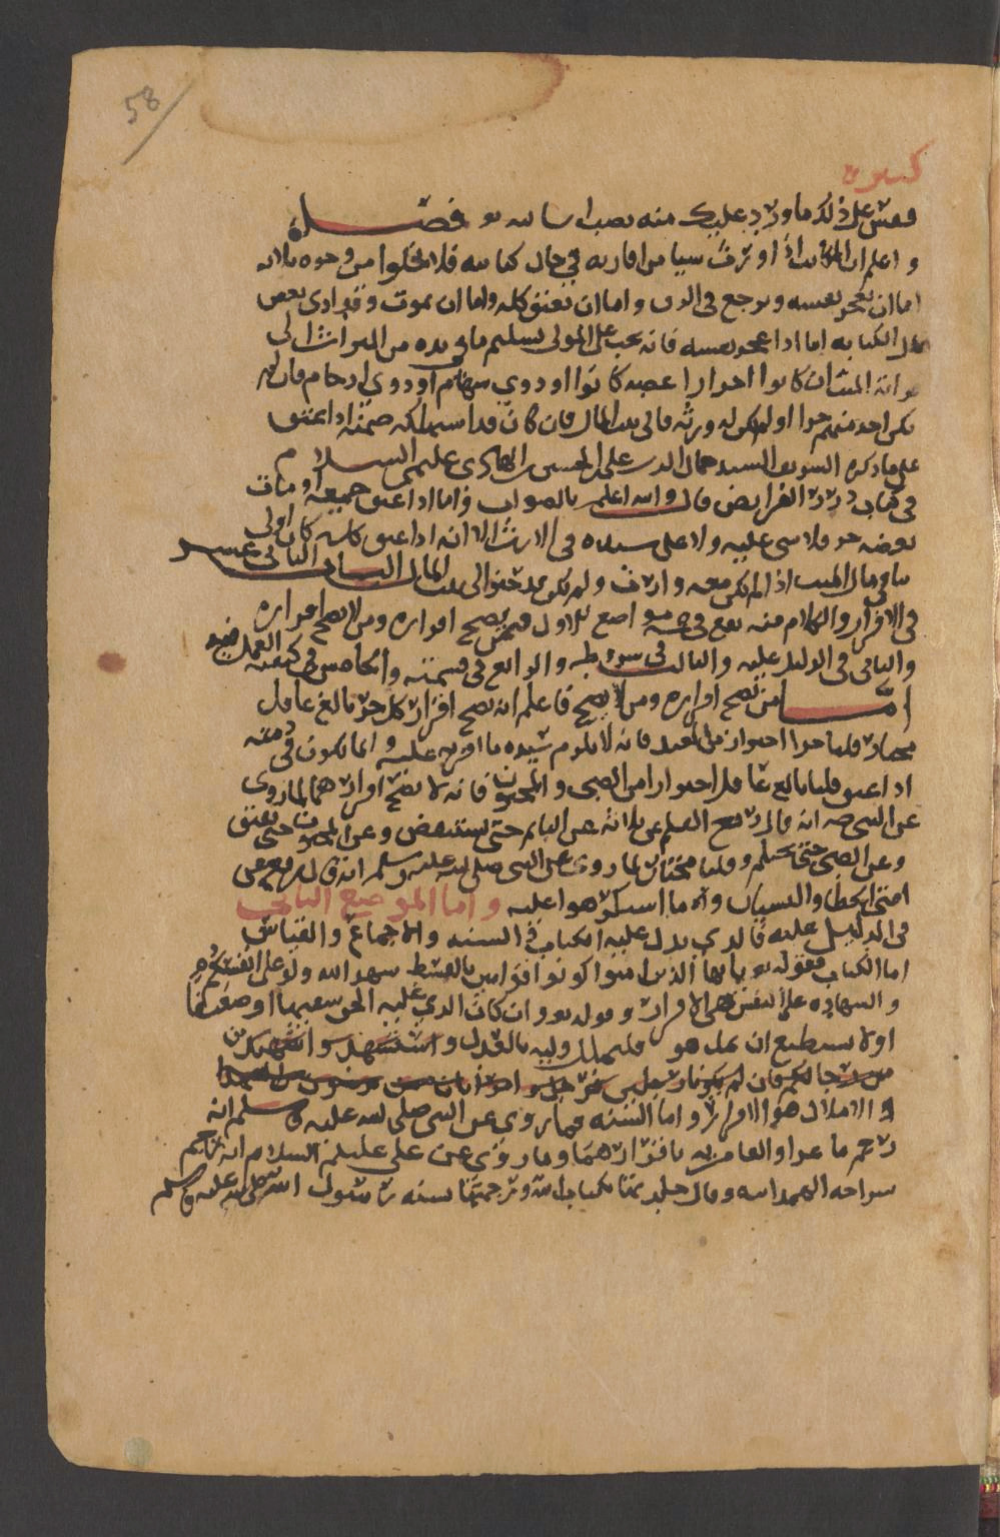 58
فقس على ذلك ما ورد عليك منه تصب ان شا الله تع فصل
واعلم ان المكاتب اذا اورث شيا من اقاربه في حال كتابته فلا يخلوا من وجوه ثلاثه
اما ان يعجز نفسه ويرجع في الرق واما ان يعتق كله واما ان يموت وقد ادى بعض
مال الكتابه اما اذا عجز نفسه فانه يجب على المولى تسليم ما في يده من الميراث الى
ورثة الميت ان كانوا احرارا عصبه كانوا او ذوي سهام او ذوي ارحام فان لم
يكن احد منهم حرا او لم يكن له ورثه فالى بيت المال فان كان قد استهلكه ضمنه اذا عتق
على ما ذكره الشريف السيد جمال الدين علي بن الحسين عليهم السلام
في كتاب درر الفرايض قال والله اعلم بالصواب واما اذا عتق جميعه او مات
بعضه حر فلا شي عليه ولا على سيده في الارث الا انه اذا عتق كله كان اولى
بباقي مال الميت اذا لم يكن معه وارث ولم يكن قد حتوا الى بيت المال الباب الثاني عشر
في الاقرار والكلام منه يقع في خمسه مواضع الاول فيمن يصح اقراره ومن لا يصح اقراره
والثاني في الدليل عليه والثالث في شروطه والرابع في قسمته والخامس في كيفية العمل فيه
اما من يصح اقراره ومن لا يصح فاعلم انه يصح اقرار كل حر بالغ عاقل
مختار قلنا حرا احترازا من العبد فانه لا يلزم سيده ما اقر به عليه وانما يكون في ذمته
اذا عتق قلنا بالغ عاقل احترازا من الصبي والمجنون فانه لا يصح اقرارهما لما روي
عن النبي صه انه قال رفع القلم عن ثلاثة عن النايم حتى يستيقض وعن المجنون حتى يفيق
وعن الصبي حتى يحتلم وقلنا مختار لما روي عن النبي صلى الله عليه وسلم انه قال رفع عن
امتي الخطا والنسيان وما استكرهوا عليه واما الموضع الثاني
في الدليل عليه فالذي يدل عليه الكتاب والسنه والاجماع والقياس
اما الكتاب فقوله تع يايها الذين امنوا كونوا قوامين بالقسط شهدا لله ولو على انفسكم
والشهاده على النفس هي الاقرار وقوله تع وان كان الذي عليه الحق سفيها او ضعيفا
او لا يستطيع ان يمل هو فليملل وليه بالعدل واستشهدوا شهيدين
من رجالكم فان لم يكونا رجلين فرجل وامراتان ممن ترضون من الشهدا
والاملال هو الاقرار واما السنه فما روي عن النبي صلى الله عليه وسلم انه
رجم ماعزا والعامريه باقرارهما وما روي عن علي عليه السلام انه رجم
شراحه الهمدانيه وقال جلدتها بكتاب الله ورجمتها بسنه رسول الله صلى الله عليه وسلم